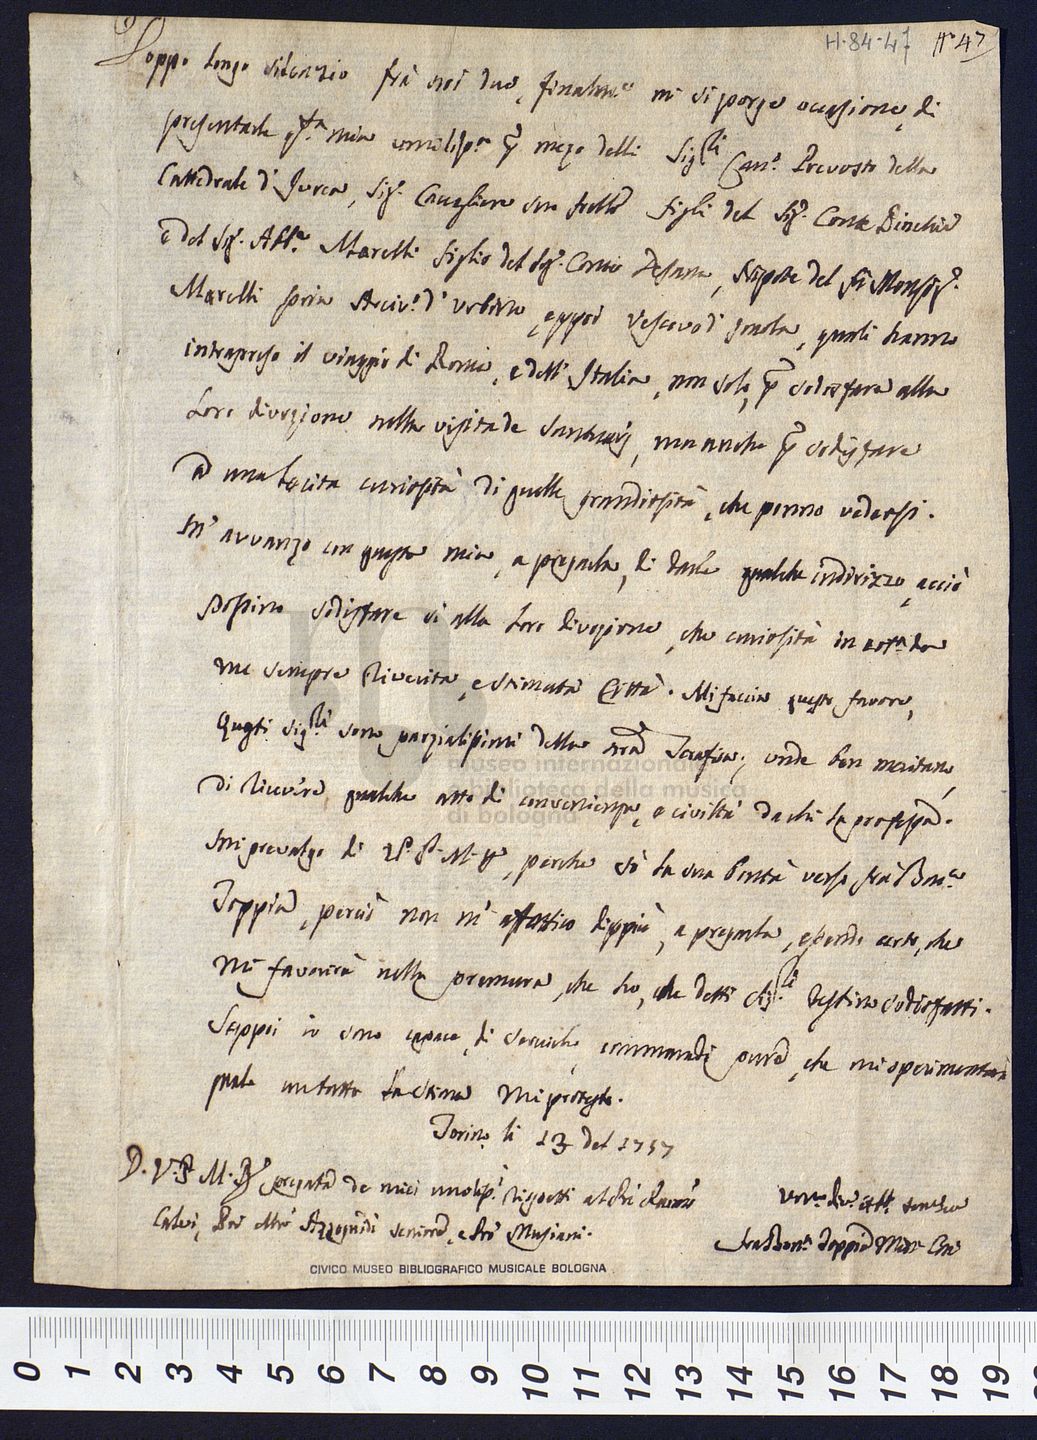 H-84-47 N° 47
Doppo longo silenzio frà noi due, finalme mi si porge occasione, di
presentarle qta mia umilissa p mezo delli Sigri Cano Prevosto della
Cattedrale d'Jvrea, Sigr Cavagliere suo frello figli del Sigr Conte
e del Sigr Abbe Morelli figlio del Sigr Conte, Nipote del fù Monsigr
Marelli pria Arcivo d'Urbino, eppoi Vescovo d'Imola, quali hanno
intrapreso il viaggio di Roma, e dell'Italia, non solo, p sodisfare alla
Loro divozione nella visita de Santuarij, ma anche p sodisfare
ad una lecita curiosità di quelle grandiosità, che ponno vedersi.
M'avvanzo con questa mia, a pregarla, di darle qualche indirizzo, acciò
possino sodisfare sì alla loro divozione, che curiosità in cotta da
me sempre riverita, e stimata Città. Mi faccia questo favore,
Questi Sigri sono parzialissimi della, onde ben meritano,
di ricevere qualche atto di convenienza, e civiltà da chi la professa.
Mi prevalgo di V. P. M. R., perche sò la sua bontà verso frà Bonra
Toppia, perciò non m'affatico dippiù, a pregarla, essendo certo, che
mi favorirà nella premura, che ho, che detti Sigri restino sodisfatti.
Seppoi io sono capace, di servirla, commandi pure, che mi sperimenterà
quale con tutta la stima mi protesto.
Torino li 13 del 1757
D. V. P. M. R. pregata de miei umolissi rispetti alli
Calvi, Azzoguidi, e Musiani.
fra Bonra Toppia Min. Con.
museo internazionale
e biblioteca della musica
di bologna
CIVICO MUSEO BIBLIOGRAFICO MUSICALE BOLOGNA
0 1 2 3 4 5 6 7 8 9 10 11 12 13 14 15 16 17 18 19